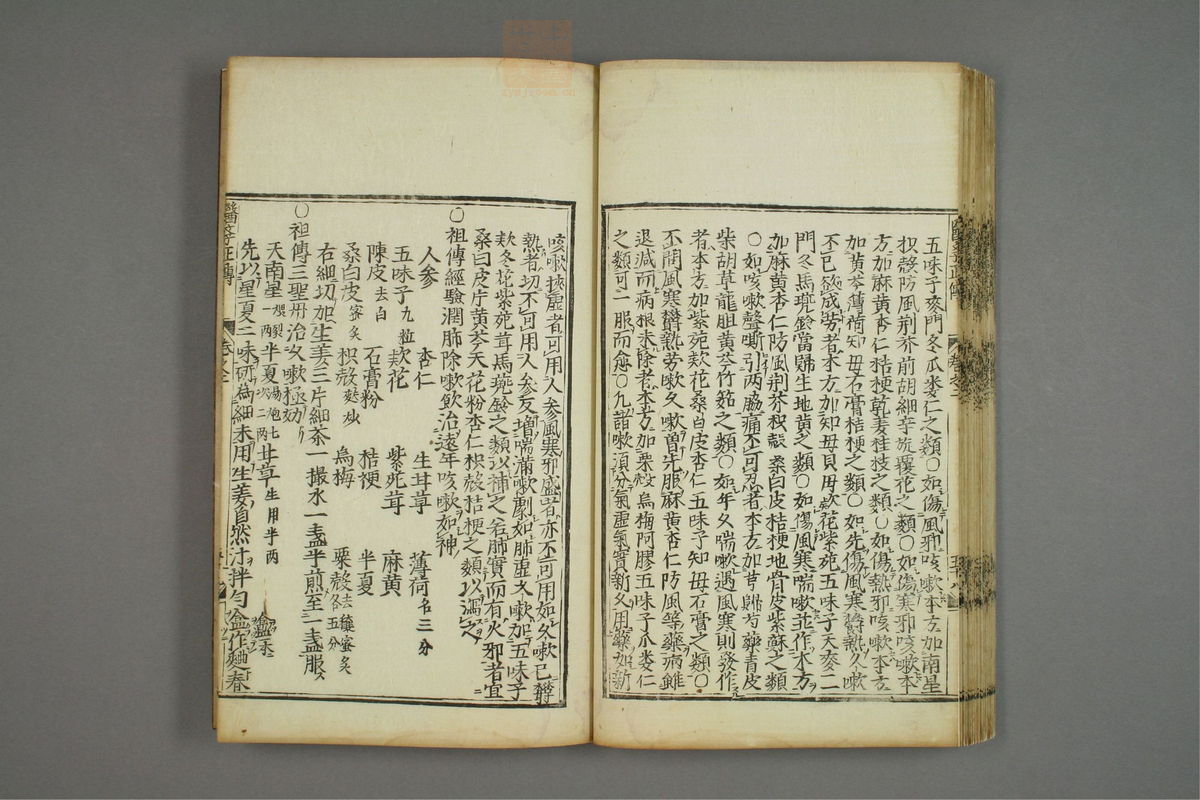 五味子麥門冬瓜蔞仁之類〇如傷風邪咳嗽本方加南星
枳殼防風荆芥前胡細辛旋覆花之類〇如傷寒邪咳嗽本
方加麻黄杏仁桔梗乾姜桂枝之類〇如傷熱邪咳嗽本方
加黄芩薄荷知母石膏桔梗之類〇如先傷風寒欝熱久嗽
不已欲成劳者本方加知母貝母欵花紫菀五味子天麥二
門冬馬兜鈴當歸生地黄之類〇如傷風寒喘嗽並作本方
加麻黄杏仁防風荆芥枳殼桑白皮桔梗地骨皮紫蘇之類
〇如咳嗽聲嘶引两脇痛不可忍者本方加芎歸芍藥青皮
柴胡草龍胆黄芩竹茹之類〇如年久喘嗽遇風寒則發作
者本方加紫菀欵花桑白皮杏仁五味子知母石膏之類〇
不問風寒欝熱劳嗽久嗽曽先服麻黄杏仁防風等藥病雖
退减而病根未除者本方加粟殼烏梅阿膠五味子瓜蔞仁
之類可一服而愈〇凡諸嗽須分氣虚氣實新久用藥如新
咳嗽挟虚者可用人参風寒邪盛者亦不可用如久嗽已欝
熱者切不可用人参反増喘滿嗽劇如肺虚久嗽加五味子
欵冬花紫菀茸馬兜鈴之類以補之若肺實而有火邪者宜
桑白皮片黄芩天花粉杏仁枳殼桔梗之類以瀉之
〇祖傳經驗潤肺除嗽飲治遠年咳嗽如神
人参 杏仁 生甘草 薄荷各三分
五味子九粒 欵花 紫菀茸 麻黄
陳皮去白 石膏粉 桔梗 半夏
桑白皮蜜炙 枳殼麩炒 烏梅 粟殼去穰蜜炙各五分
右細切加生姜三片細茶一撮水一盞半煎至一盞服
〇祖傳三聖丹治久嗽極効
天南星一两 半夏湯炮七次二两 甘草生用半两
先以星夏二味研爲細末用生姜自然汁拌匀盒作麯春
醫學正傳 卷之二